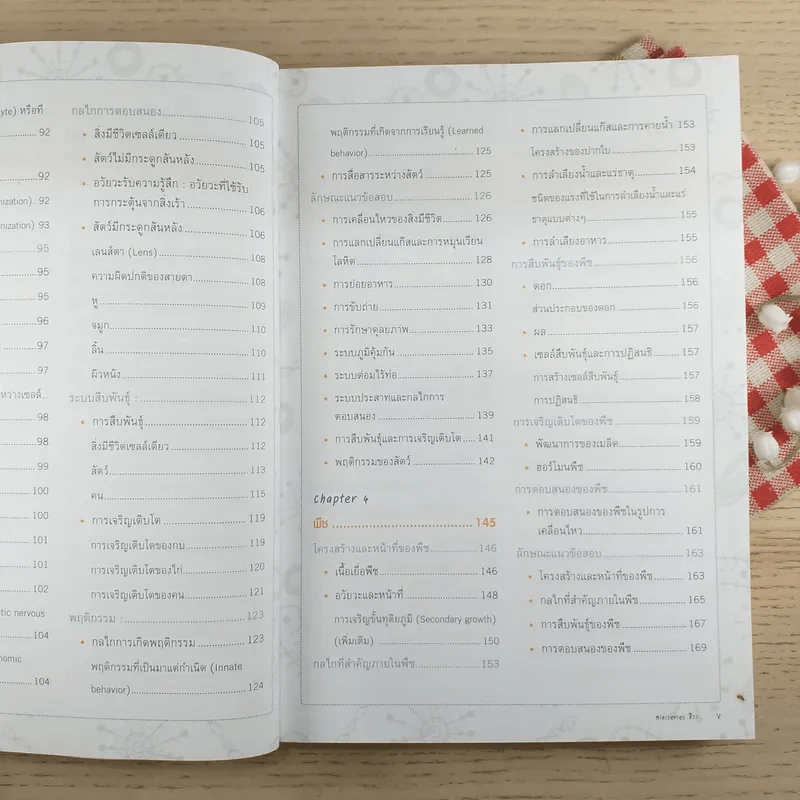 yte) หรือที่
92
92
nization).. 92
nization) 93
95
95
95
96
97
97
หว่างเซลล์...
98
98
99
100
100
101
101
102
tic nervous
104
nomic
104
กลไกการตอบสนอง 105
• สิ่งมีชีวิตเซลล์เดียว 105
• สัตว์ไม่มีกระดูกสันหลัง 105
• อวัยวะรับความรู้สึก : อวัยวะที่ใช้รับ
การกระตุ้นจากสิ่งเร้า 106
• สัตว์มีกระดูกสันหลัง 106
เลนส์ตา (Lens) 108
ความผิดปกติของสายตา 108
หู 109
จมูก 110
ลิ้น 110
ผิวหนัง 111
ระบบสืบพันธุ์ : 112
• การสืบพันธุ์ 112
สิ่งมีชีวิตเซลล์เดียว 112
สัตว์ 113
คน 115
• การเจริญเติบโต 119
การเจริญเติบโตของกบ 119
การเจริญเติบโตของไก่ 120
การเจริญเติบโตของคน 121
พฤติกรรม : 123
• กลไกการเกิดพฤติกรรม 123
พฤติกรรมที่เป็นมาแต่กำเนิด (Innate
behavior) 124
พฤติกรรมที่เกิดจากการเรียนรู้ (Learned
behavior) 125
• การสื่อสารระหว่างสัตว์ 125
ลักษณะแนวข้อสอบ 126
• การเคลื่อนไหวของสิ่งมีชีวิต 126
• การแลกเปลี่ยนแก๊สและการหมุนเวียน
โลหิต 128
• การย่อยอาหาร 130
• การขับถ่าย 131
• การรักษาดุลยภาพ 133
• ระบบภูมิคุ้มกัน 135
• ระบบต่อมไร้ท่อ 137
• ระบบประสาทและกลไกการ
ตอบสนอง 139
• การสืบพันธุ์และการเจริญเติบโต 141
• พฤติกรรมของสัตว์ 142
Chapter 4
พืช 145
โครงสร้างและหน้าที่ของพืช 146
• เนื้อเยื่อพืช 146
• อวัยวะและหน้าที่ 148
การเจริญขั้นทุติยภูมิ (Secondary growth)
(เพิ่มเติม) 150
กลไกที่สำคัญภายในพืช 153
• การแลกเปลี่ยนแก๊สและการคายน้ำ 153
โครงสร้างของปากใบ 153
• การลำเลียงน้ำและแร่ธาตุ 154
ชนิดของแรงที่ใช้ในการลำเลียงน้ำและแร่
ธาตุแบบต่างๆ 155
• การลำเลียงอาหาร 155
การสืบพันธุ์ของพืช 156
• ดอก 156
ส่วนประกอบของดอก 156
• ผล 157
• เซลล์สืบพันธุ์และการปฏิสนธิ 157
การสร้างเซลล์สืบพันธุ์ 157
การปฏิสนธิ 158
การเจริญเติบโตของพืช 159
• พัฒนาการของเมล็ด 159
• ฮอร์โมนพืช 160
การตอบสนองของพืช 161
• การตอบสนองของพืชในรูปการ
เคลื่อนไหว 161
ลักษณะแนวข้อสอบ 163
• โครงสร้างและหน้าที่ของพืช 163
• กลไกที่สำคัญภายในพืช 165
• การสืบพันธุ์ของพืช 167
• การตอบสนองของพืช 169
ชีวะ V